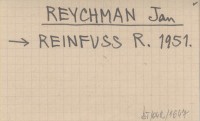 REYCHMAN Jan
→ REINFUSS R. 1951.